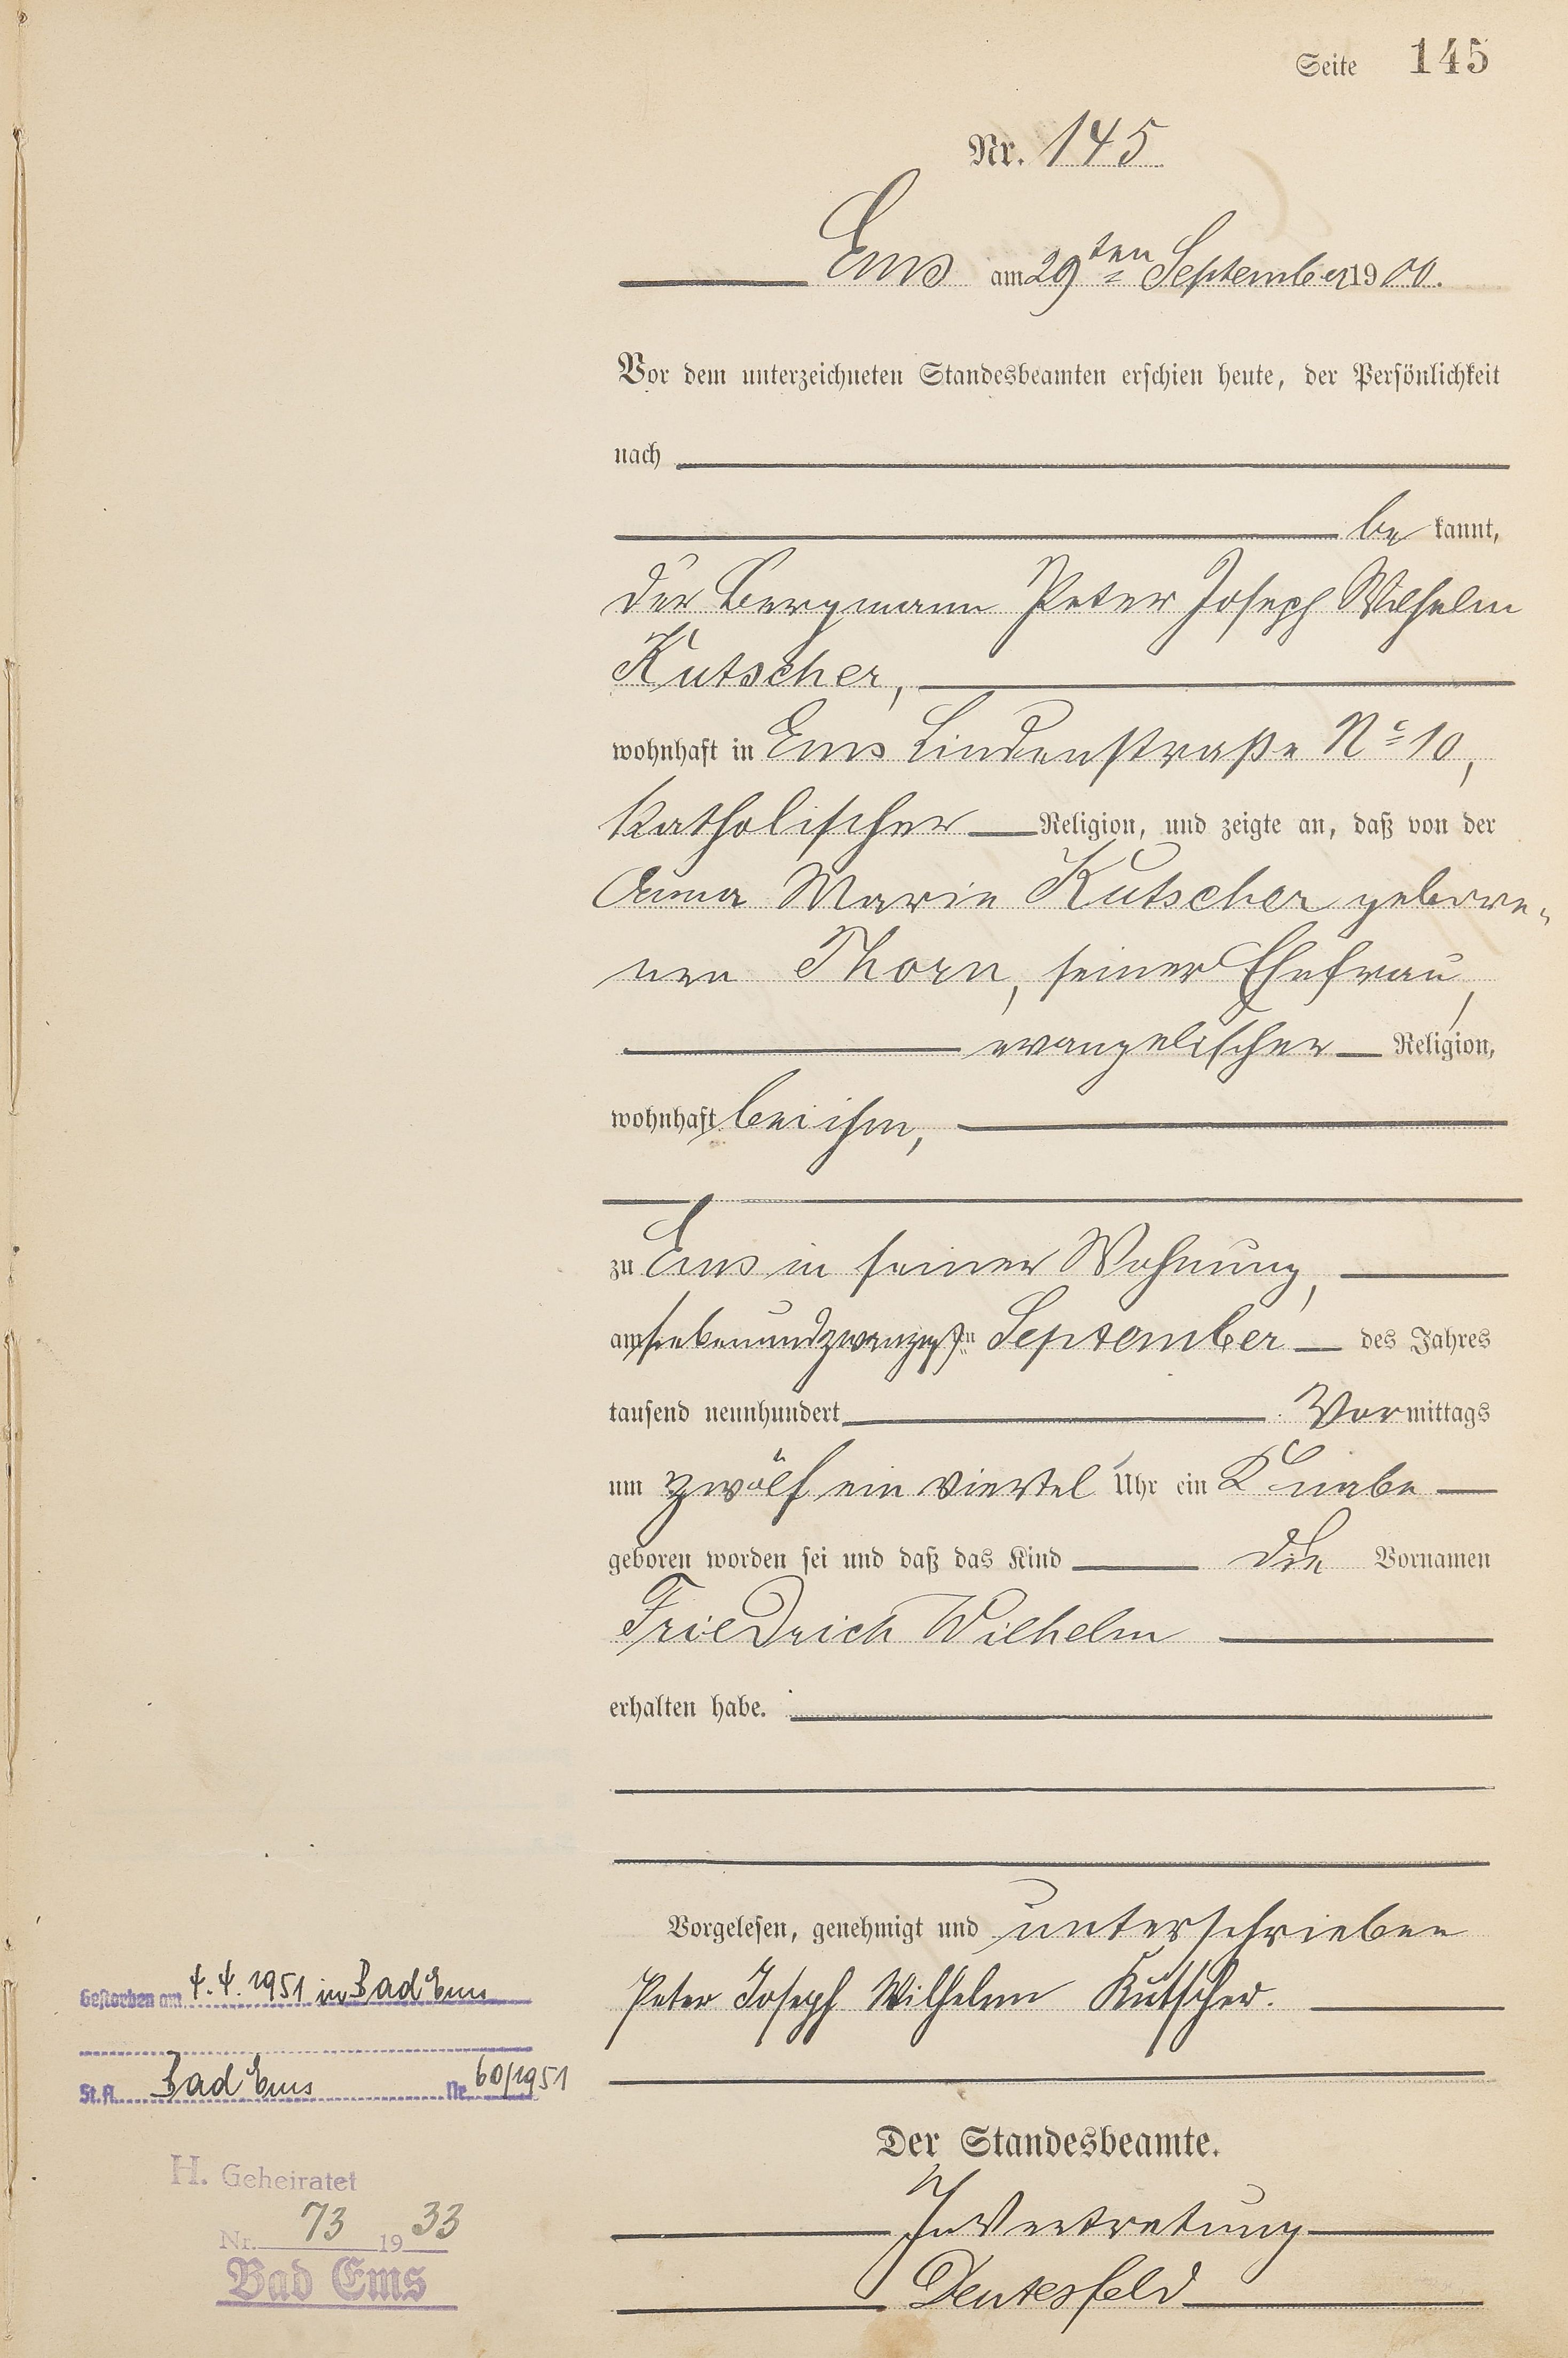 Seite 145
Nr. 145
Ems am 29ten September 1900.
Vor dem unterzeichneten Standesbeamten erschien heute, der Persönlichkeit
nach
be kannt,
der Bergmann Peter Joseph Wilhelm
Kutscher,
wohnhaft in Ems Lindenstraße No 10,
katholischer Religion, und zeigte an, daß von der
Anna Marie Kutscher gebore-
nen Thorn, seiner Ehefrau,
evangelischer Religion,
wohnhaft bei ihm,
zu Ems in seiner Wohnung,
am siebenundzwanzigsten September des Jahres
tausend neunhundert Vormittags
um zwölf ein viertel Uhr ein Knabe
geboren worden sei und daß das Kind die Vornamen
Friedrich Wilhelm
erhalten habe.
Vorgelesen, genehmigt und unterschrieben
Peter Joseph Wilhelm Kutscher.
Der Standesbeamte.
In Vertretung
Deutesfeld
Gestorben am 4.4.1951 in Bad Ems
St.A. Bad Ems Nr. 60/1951
H. Geheiratet
Nr. 73 1933
Bad Ems